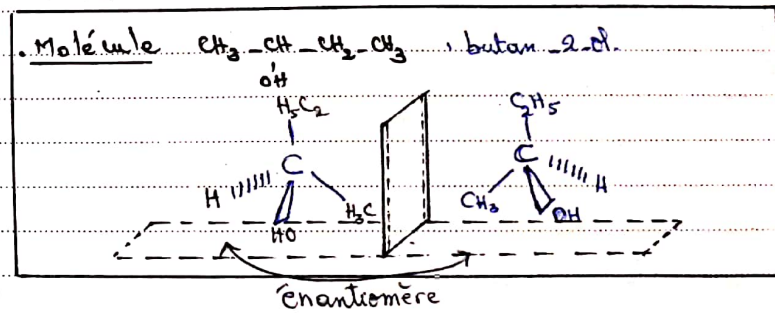 . Molécule CH₃ - CH - CH₂ - CH₃ , butan-2-ol.
OH
H₅C₂
C₂H₅
C
C
H
H₃C
CH₃
H
HO
OH
énantiomère